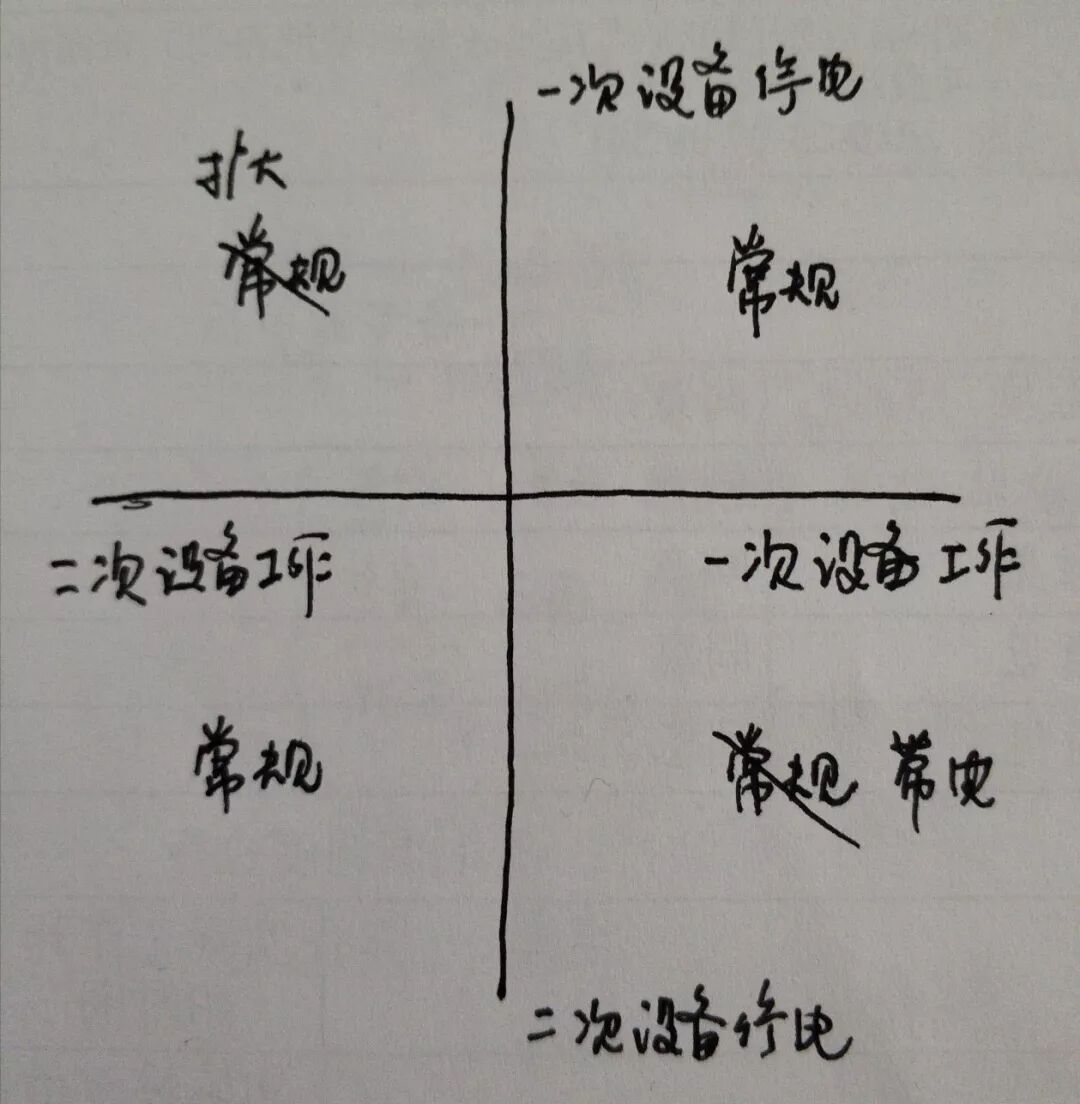 一次设备停电
扩大
常规
常规
二次设备工作
一次设备工作
常规
常规 带电
二次设备停电